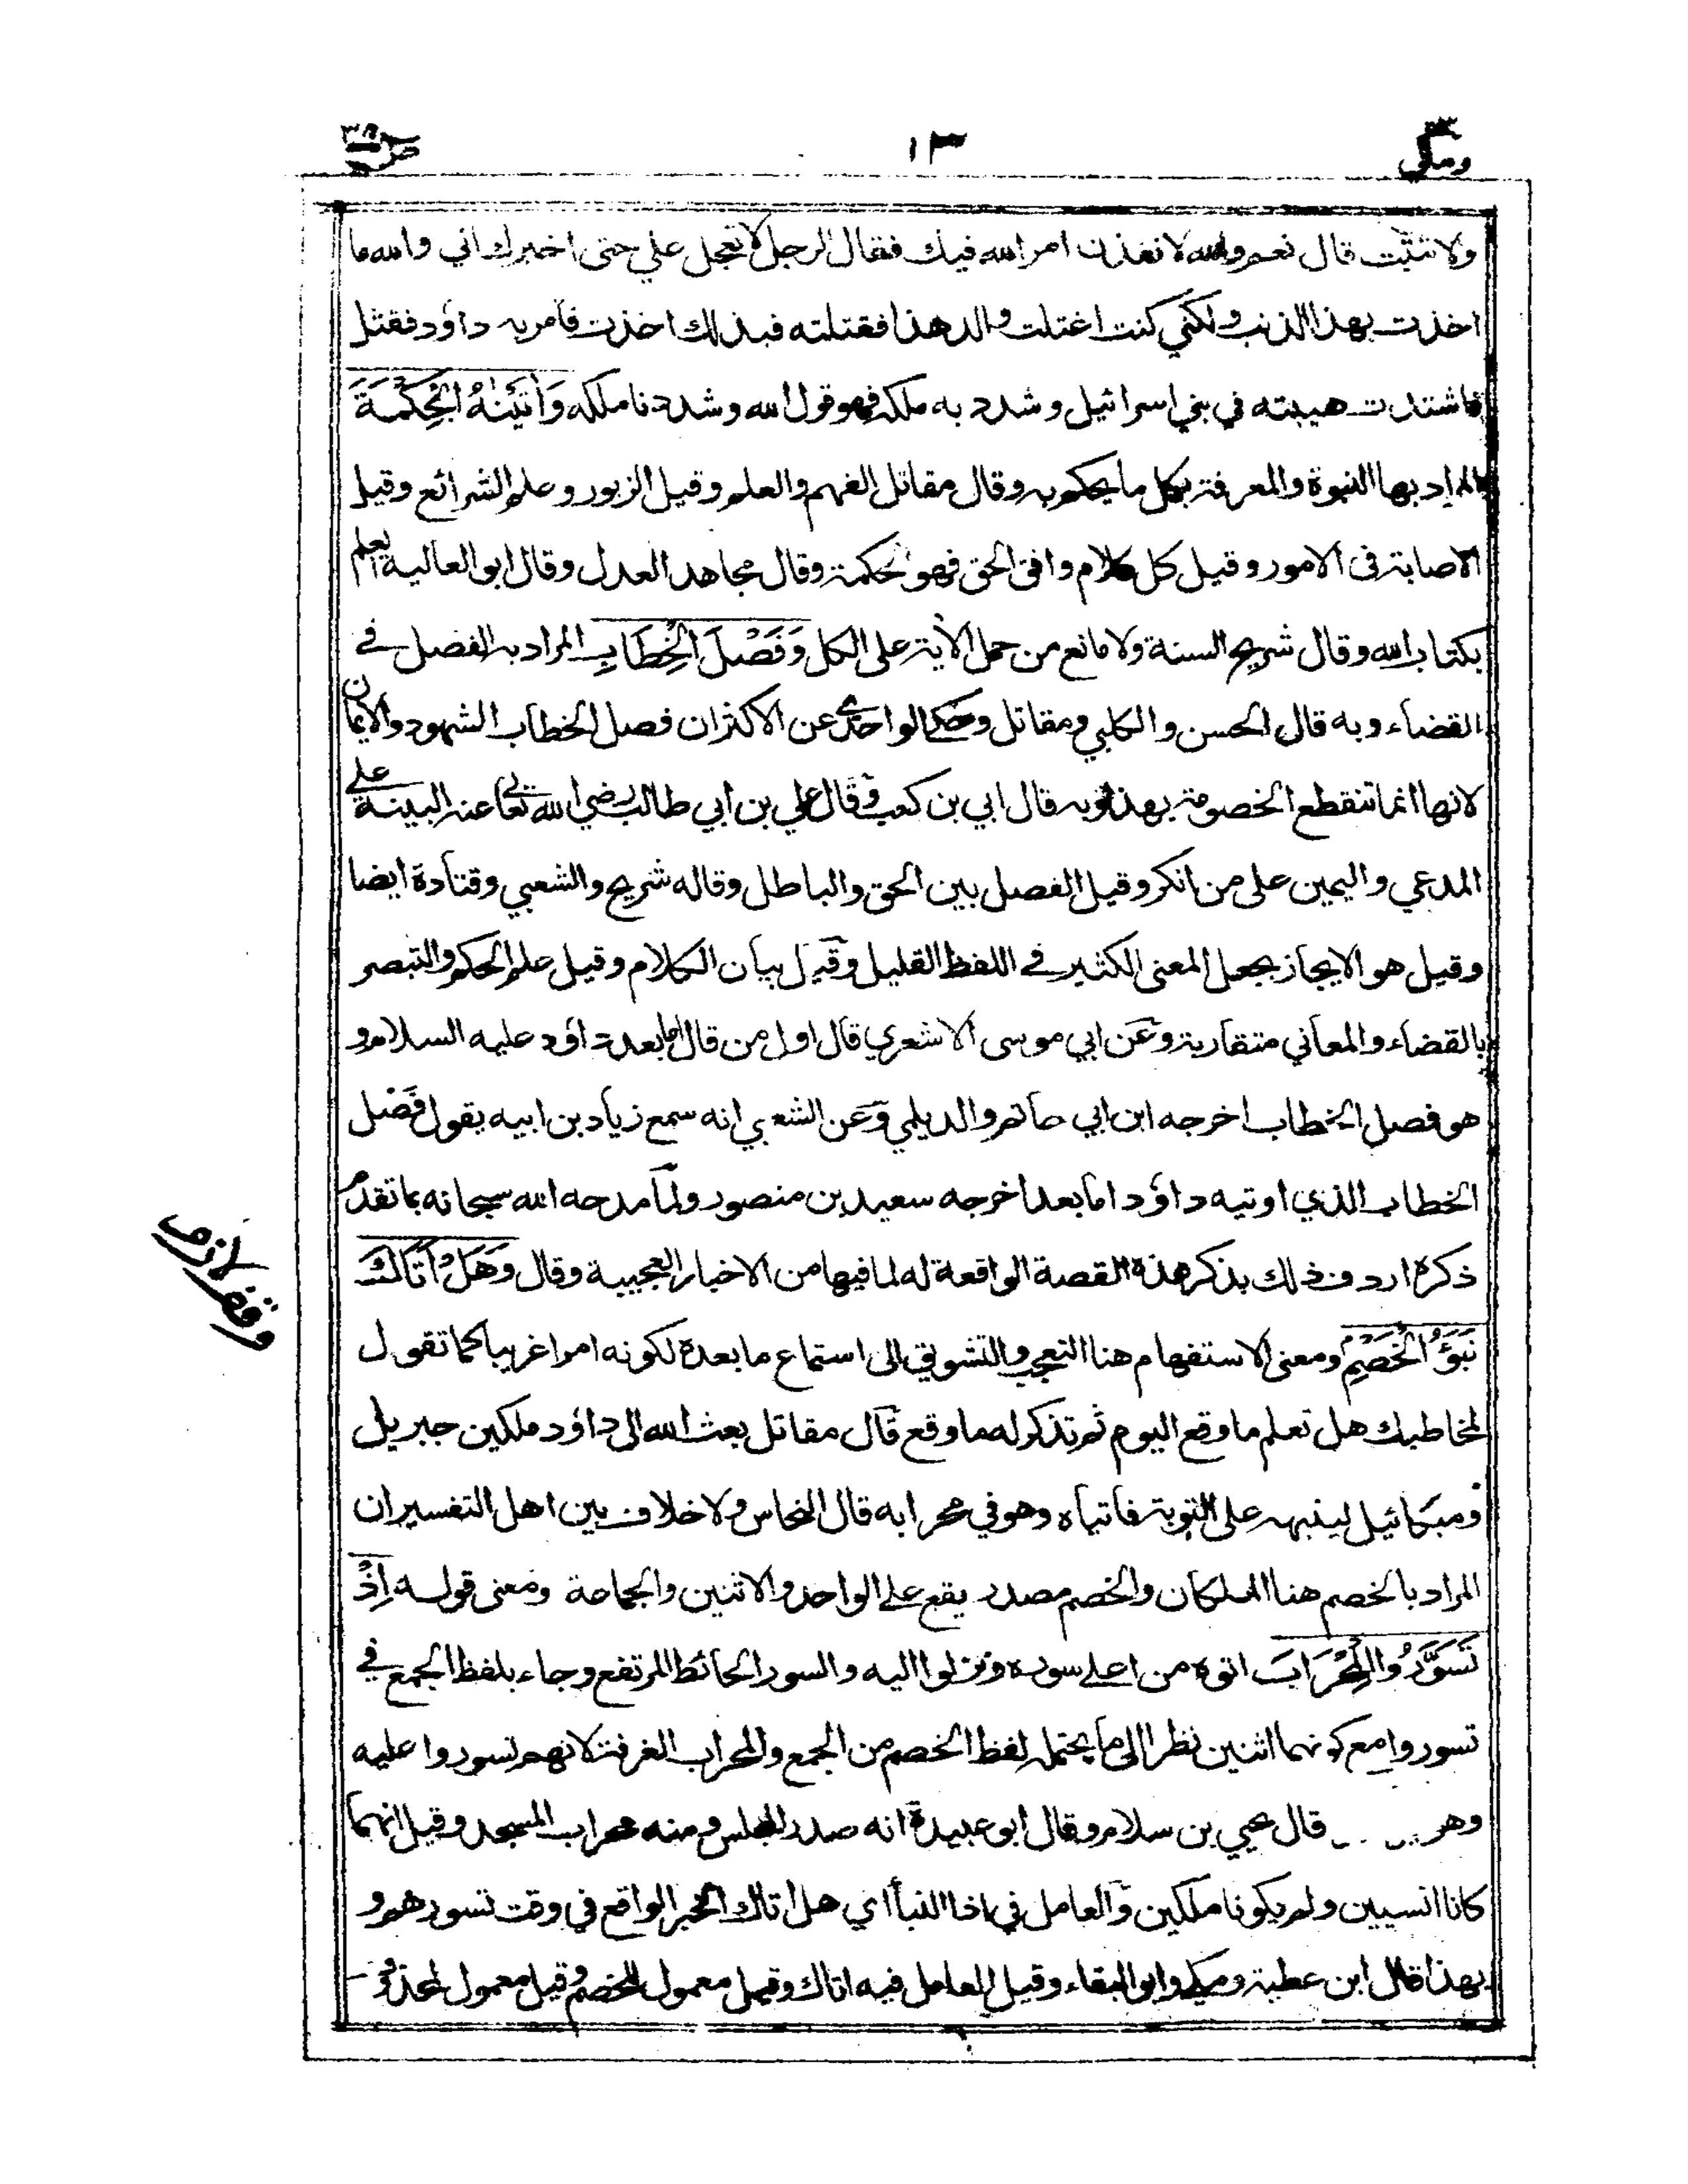 ومالي ٢٣
١٣
ص ٣٨
ولا تثبت قال نعم والله لانفذن امر الله فيك فقال الرجل لا تعجل علي حتى اخبرك اني والله ما
اخذت بهذا الذنب ولكني كنت اغتلت والد هذا فقتلته فبذلك اخذت فأمر به داؤد فقتل
فاشتدت هيبته في بني اسرائيل وشدد به ملكه فهو قول الله وشددنا ملكه وَاٰتَيْنٰهُ الْحِكْمَةَ
المراد بها النبوة والمعرفة بكل ما يحكم به وقال مقاتل الفهم والعلم وقيل الزبور وعلم الشرائع وقيل
الاصابة في الامور وقيل كل كلام وافق الحق فهو الحكمة وقال مجاهد العدل وقال ابو العالية العلم
بكتاب الله وقال شريح السنة ولا مانع من حمل الأية على الكل وَفَصْلَ الْخِطَابِ المراد به الفصل في
القضاء وبه قال الحسن والكلبي ومقاتل وحكى الواحدي عن الاكثر ان فصل الخطاب الشهود والايمان
لانها انما تنقطع الخصومة بهذا وبه قال ابي بن كعب وقال علي بن ابي طالب رضي الله تعالى عنه البينة على
المدعي واليمين على من انكر وقيل الفصل بين الحق والباطل وقاله شريح والشعبي وقتادة ايضا
وقيل هو الايجاز بجعل المعنى الكثير في اللفظ القليل وقيل بيان الكلام وقيل علم الحكم والتبصر
بالقضاء والمعاني متقاربة وعن ابي موسى الاشعري قال اول من قال اما بعد داؤد عليه السلام و
هو فصل الخطاب اخرجه ابن ابي حاتم والديلمي وعن الشعبي انه سمع زياد بن ابيه يقول فصل
الخطاب الذي اوتيه داؤد اما بعد اخرجه سعيد بن منصور ولما مدحه الله سبحانه بما تقدم
ذكره اردف ذلك بذكر هذه القصة الواقعة له لما فيها من الاخبار العجيبة وقال وَهَلْ اَتَاكَ
نَبَؤُ الْخَصْمِ ومعنى الاستفهام هنا التعجب والتشويق الى استماع ما بعده لكونه امرا غريبا كما تقول
لمخاطبك هل تعلم ما وقع اليوم ثم تذكر له ما وقع قال مقاتل بعث الله الى داؤد ملكين جبريل
وميكائيل لينبهه على التوبة فأتياه وهو في محرابه قال النحاس ولا خلاف بين اهل التفسير ان
المراد بالخصم هنا الملكان والخصم مصدر يقع على الواحد والاثنين والجماعة ومعنى قوله اِذْ
تَسَوَّرُوا الْمِحْرَابَ اتوه من اعلى سوره ونزلوا اليه والسور الحائط المرتفع وجاء بلفظ الجمع في
تسوروا مع كونهما اثنين نظرا الى ما يحتمله لفظ الخصم من الجمع والمحراب الغرفة لانهم تسوروا عليه
وهو قال يحيى بن سلام وقال ابو عبيدة انه صدر المجلس ومنه محراب المسجد وقيل انهما
كانا انسيين ولم يكونا ملكين والعامل في اذا النبأ اي هل اتاك الخبر الواقع في وقت تسورهم و
بهذا قال ابن عطية ومكي وابو البقاء وقيل العامل فيه اتاك وقيل معمول للخصم وقيل معمول لمحذوف
وقف لازم